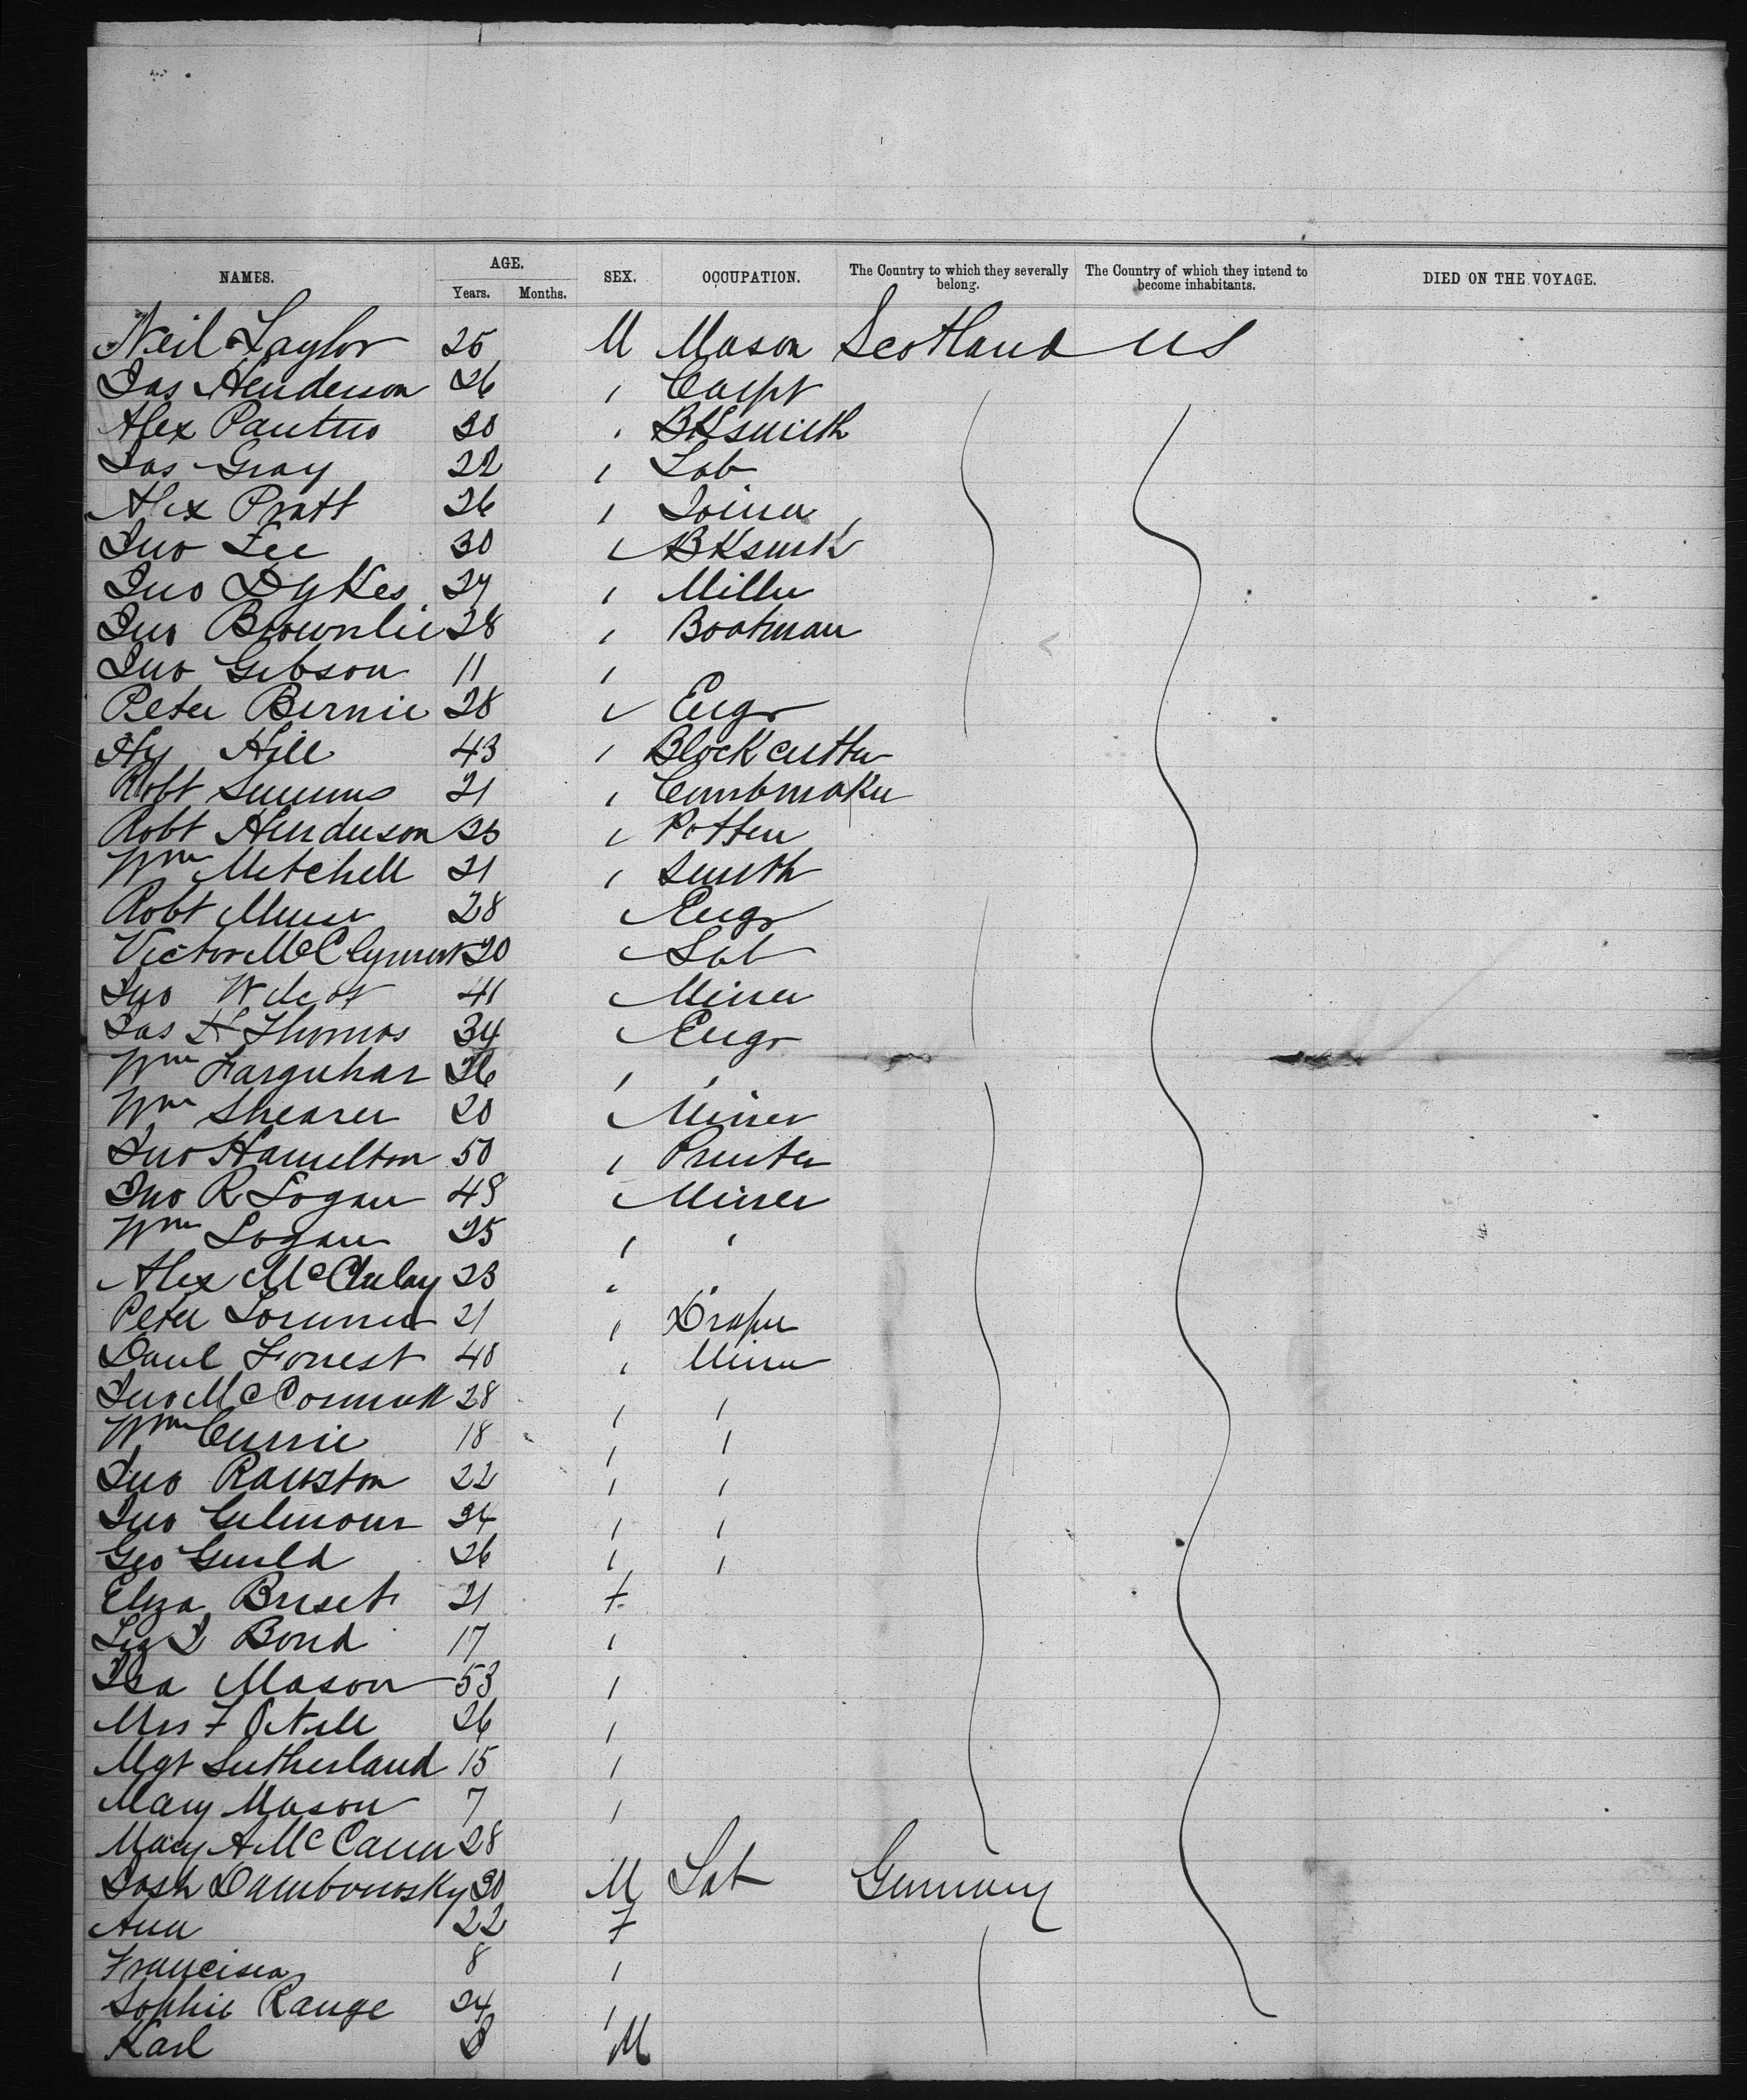 NAMES. AGE. Years. Months. SEX. OCCUPATION. The Country to which they severally belong. The Country of which they intend to become inhabitants. DIED ON THE VOYAGE.
Neil Taylor 25 M Mason Scotland US
Jas Henderson 26 Carpt
Alex 30 BKsmith
Jas Gray 22 Lab
Alex Pratt 26 Joiner
Jno Lee 30 BKsmith
Jno Dykes 27 Miller
Jno Brownlie 28 Boatman
Jno Gibson 11
Peter Birnie 28 Engr
Hy Hill 43 Blockcutter
Robt 21 Combmaker
Robt Henderson Potter
Wm Mitchell 21 Smith
Robt Muir 28 Engr
Victor McClymont 20 Lab
Jno 41 Miner
Jas H Thomas 34 Engr
Wm Farquhar 26
Wm Shearer 20 Miner
Jno Hamilton 50 Printer
Jno R Logan 48 Miner
Wm Logan 25
Alex 23
Peter Lorimer 21 Draper
Danl Forrest 40 Miner
Jno McCormick 28
Wm Currie 18
Jno 22
Jno Gilmour 24
Geo Guild 26
Eliza 21 F
Bond 17
Isa Mason 53
Mrs F ONeill 26
Mgt Sutherland 15
Mary Mason 7
Mary A McCann 28
Josh Dambonosky 30 M Lab Germany
Ann 22 F
Francisca 8
Sophie Range 24
Karl M